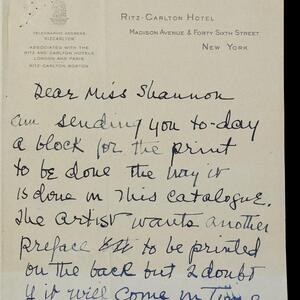 TELEGRAPHIC ADDRESS,
"RIZCARLTON"
ASSOCIATED WITH THE
RITZ AND CARLTON HOTELS
LONDON AND PARIS
RITZ-CARLTON BOSTON
RITZ-CARLTON HOTEL
MADISON AVENUE & FORTY SIXTH STREET
NEW YORK
Dear Miss Shannon
am sending you to-day
a block for the print
to be done the way it
is done in this catalogue.
The artist wants another
preface to be printed
on the back but I doubt
if it will come in